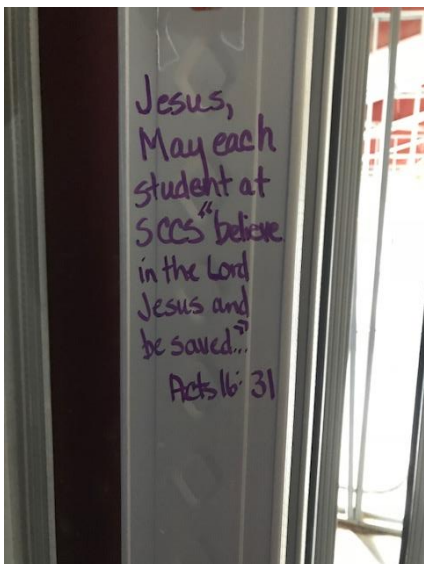 Jesus,
May each
student at
SCCS "believe
in the Lord
Jesus and
be saved..."
Acts 16:31